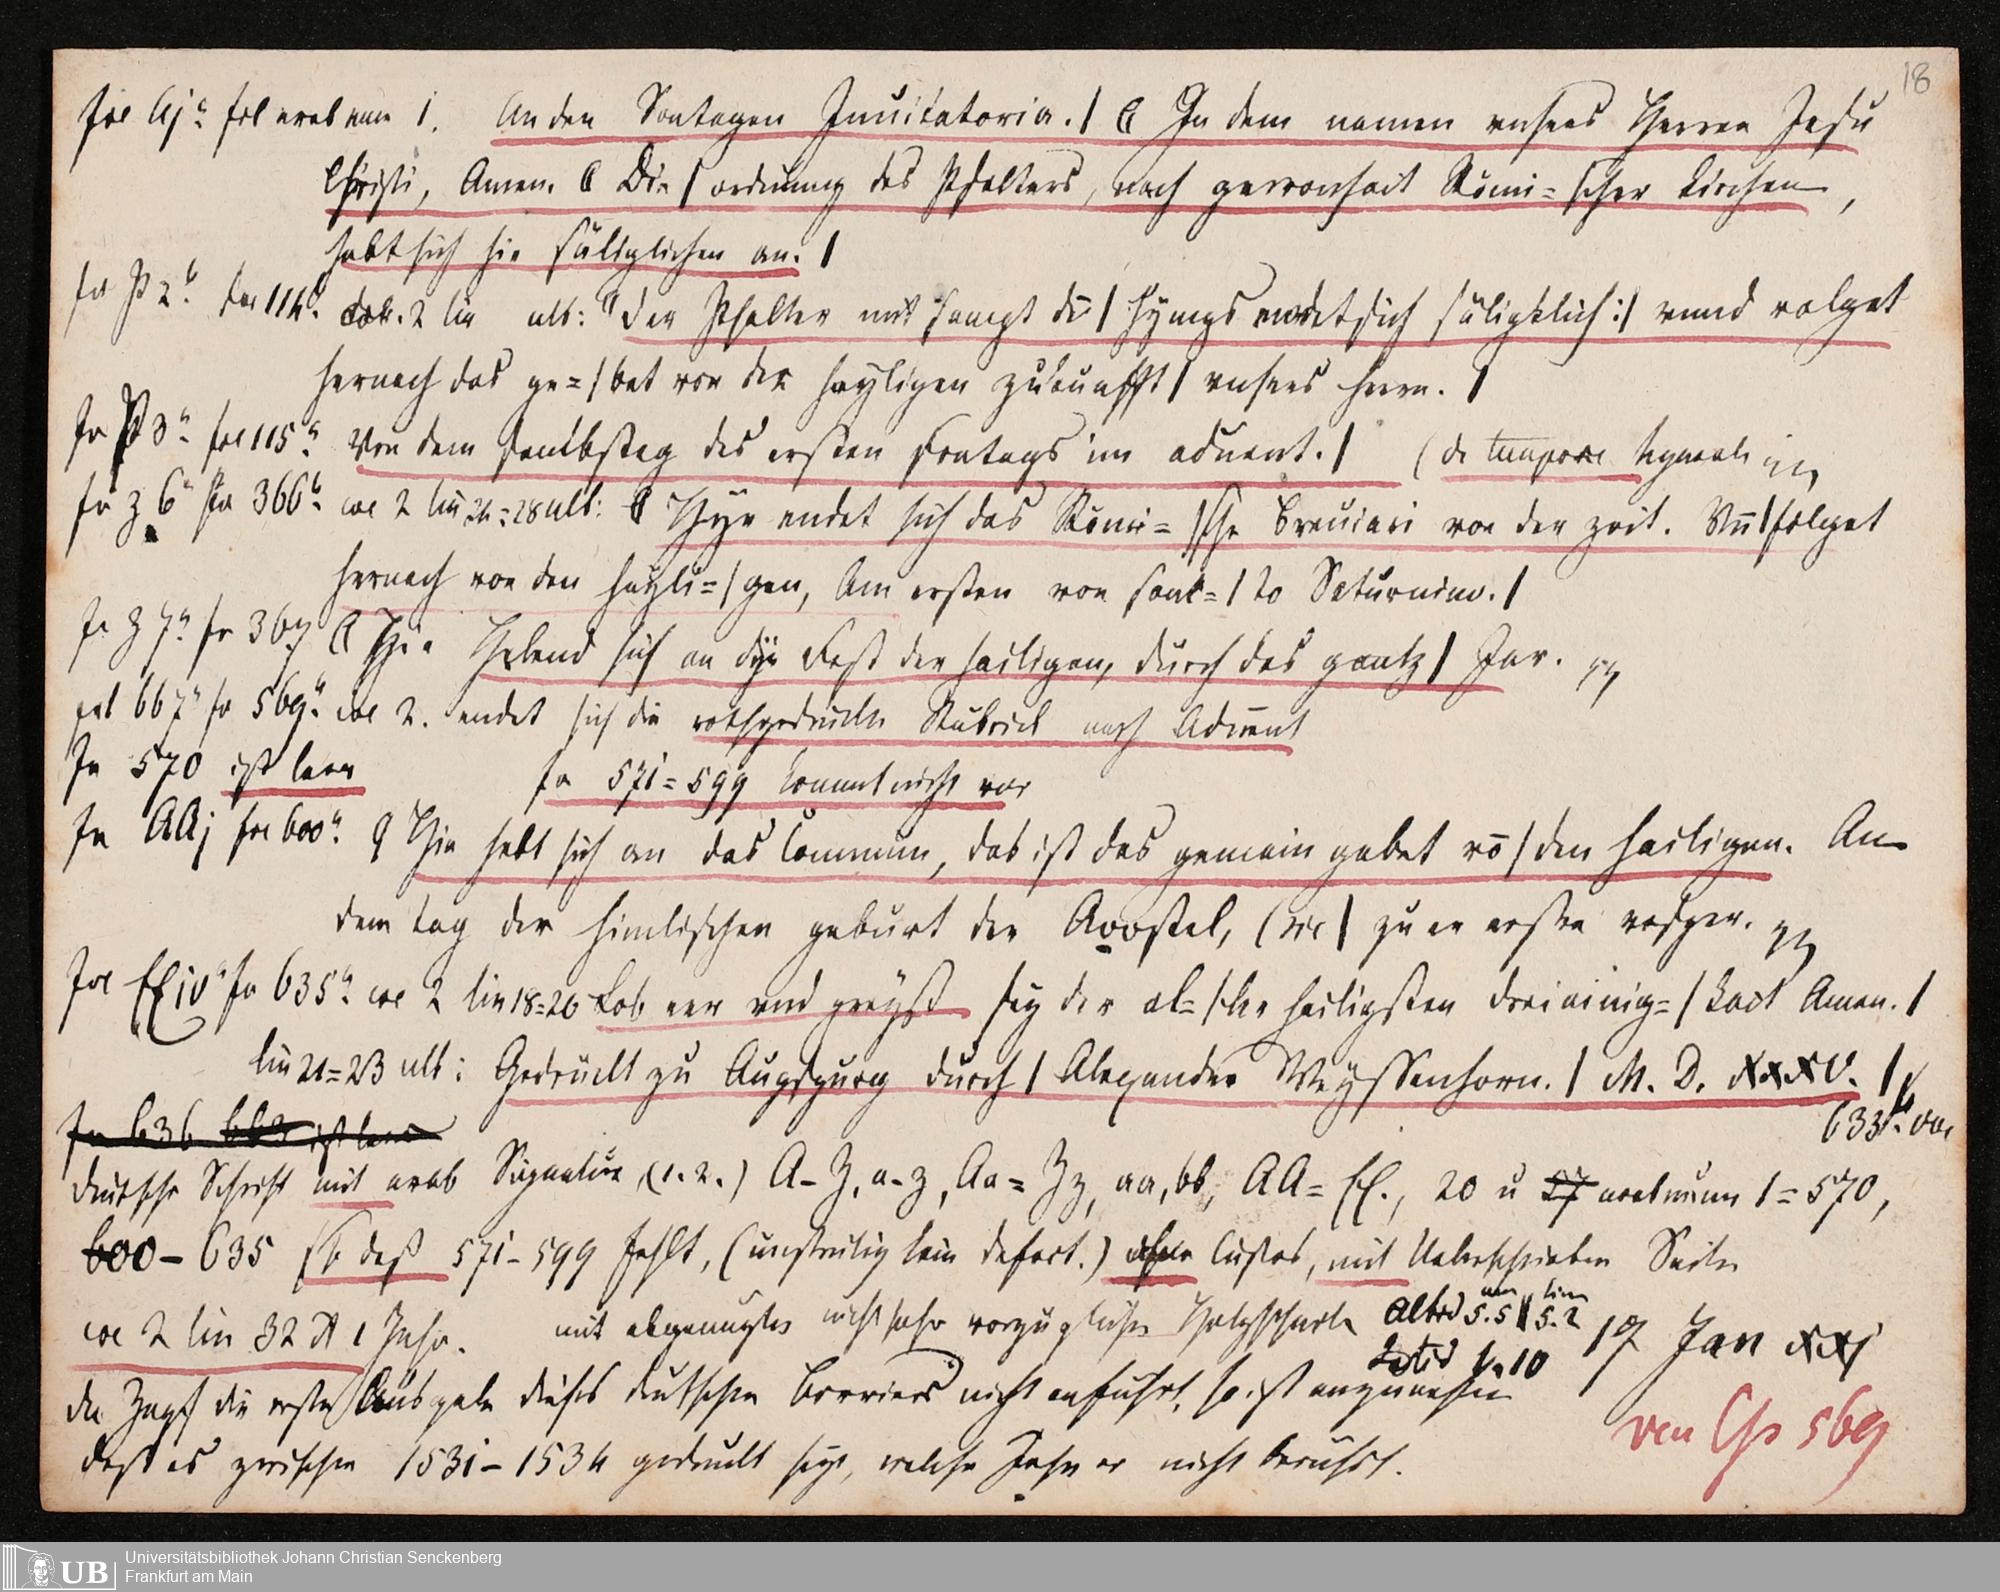 18
fol Aj a. fol arab num 1. An den Sontagen Inuitatoria. | C In dem namen vnsers Herren Jesu
Christi, Amen. C Die | ordnung des Psalters, nach gewonhait Römi= | scher kirchen,
hebt sich hie säliglichen an. |
fo P 2 b. fol 114 b. col. 2 lin ult: Der Psalter mit sampt dē | hymps endet sich säligklich: | vnnd volget
hernach das ge= | bet von der heyligen zukunfft | vnsers herrn. |
fo P 3 a. fol 115 a. Von dem Sambstag des ersten Sontags im aduent. | (de tempore
fo z 6 b fo 366 b. col 2 lin 24=28 ult: C Hye endet sich das Römi= | sche Breuiari von der zeit. Vn̄ | folget
hernach von den hayli= | gen, Am ersten von sanc= | to Saturnino. |
fo z 7 a. fo 367 C Hie Hebend sich an dye Fest der heiligen, durch das gantz | Jar.
fol 667 fo 569 a. col 2. endet sich die rothgedruckte Rubrick nach Aduent
fo 570 ist leer fo 571=599 kommt nicht vor
fo AAj fol 600 a. C Hie hebt sich an das Commun, das ist das gemein gebet vō | den heiligen. An
dem tag der himlischen geburt der Apostel, (sic | zu er ersten vesper.
fol Ff iv a fo 635 a. col 2 lin 18=20 Lob eer vnd preyß sey der al= | ler heiligsten dreiainig= | kait Amen. |
lin 21=23 ult: Gedruckt zu Augspurg durch | Alexander Weyssenhorn. | M. D. XXXV. |
fo 636 ist leer
635 b. vac
deutsche Schrift mit arab Signatur, (1. 2.) A-Z, a-z, Aa=Zz, aa, bb, AA=Ff., 20 u 27 arab num 1=570,
600-635 so daß 571-599 fehlt, (unstreitig kein defect.) ohne Custos, mit Ueberschrieben Seiten
col 2 lin 32 mit abgenuzten nicht sehr vorzüglichen Holzschnitten 17 Jan xxj
da Zapf die erste Ausgabe dieses deutschen Breviers nicht anführt, so ist anzunehmen
daß es zwischen 1531-1534 gedruckt sey, welche Jahre er nicht berührt.
569
Universitätsbibliothek Johann Christian Senckenberg
Frankfurt am Main
UB